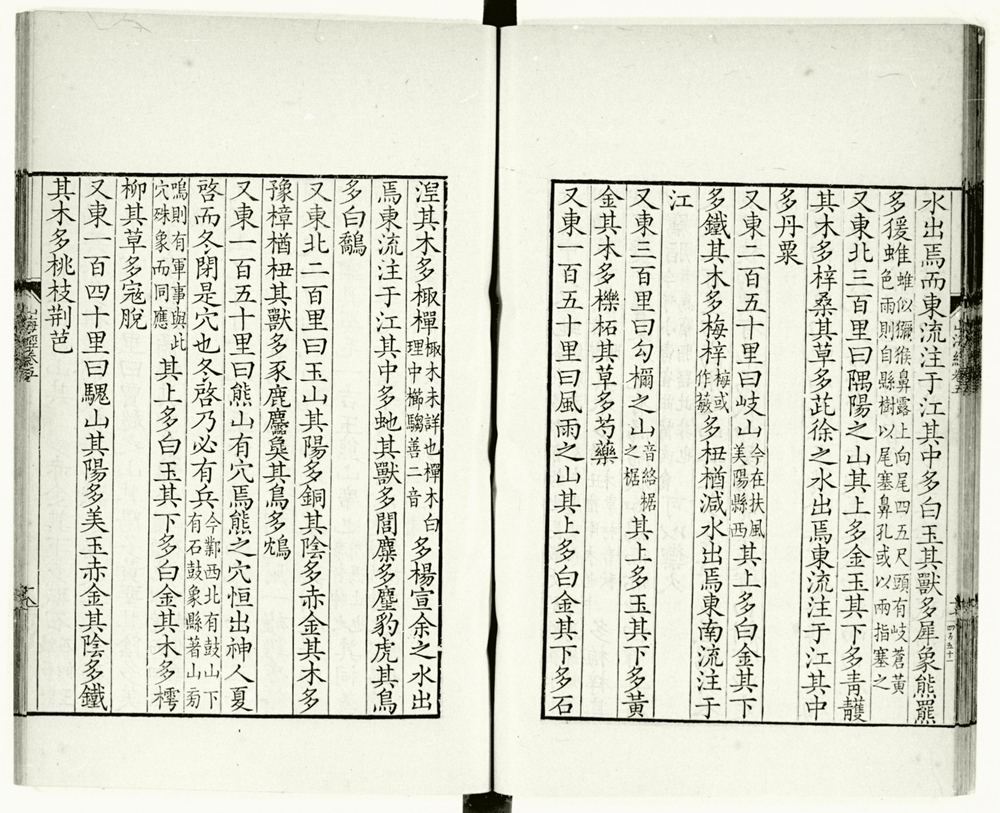 水出焉而東流注于江其中多白玉其獸多犀象熊羆
多猨蜼蜼似獼猴鼻露上向尾四五尺頭有岐蒼黃色雨則自縣樹以尾塞鼻孔或以兩指塞之
又東北三百里曰隅陽之山其上多金玉其下多青雘
其木多梓桑其草多茈徐之水出焉東流注于江其中
多丹粟
又東二百五十里曰岐山今在扶風美陽縣西其上多白金其下
多鐵其木多梅梓梅或作𦽦多杻楢減水出焉東南流注于
江
又東三百里曰勾檷之山音絡椐之椐其上多玉其下多黃
金其木多櫟柘其草多芍藥
又東一百五十里曰風雨之山其上多白金其下多石
涅其木多棷樿棷木未詳也樿木白理中櫛騶善二音多楊宣余之水出
焉東流注于江其中多虵其獸多閭麋多麈豹虎其鳥
多白鷮
又東北二百里曰玉山其陽多銅其陰多赤金其木多
豫樟楢杻其獸多豕鹿麢㚟其鳥多鴆
又東一百五十里曰熊山有穴焉熊之穴恒出神人夏
啓而冬閉是穴也冬啓乃必有兵今鄴西北有鼓山下有石鼓象縣著山旁鳴則有軍事與此穴殊象而同應
其上多白玉其下多白金其木多樗
柳其草多寇脫
又東一百四十里曰騩山其陽多美玉赤金其陰多鐵
其木多桃枝荆芭
山海經卷五